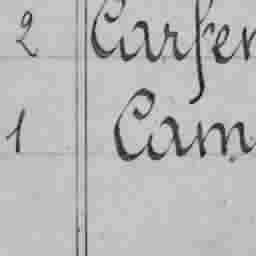 2 Carfer
1 Cam